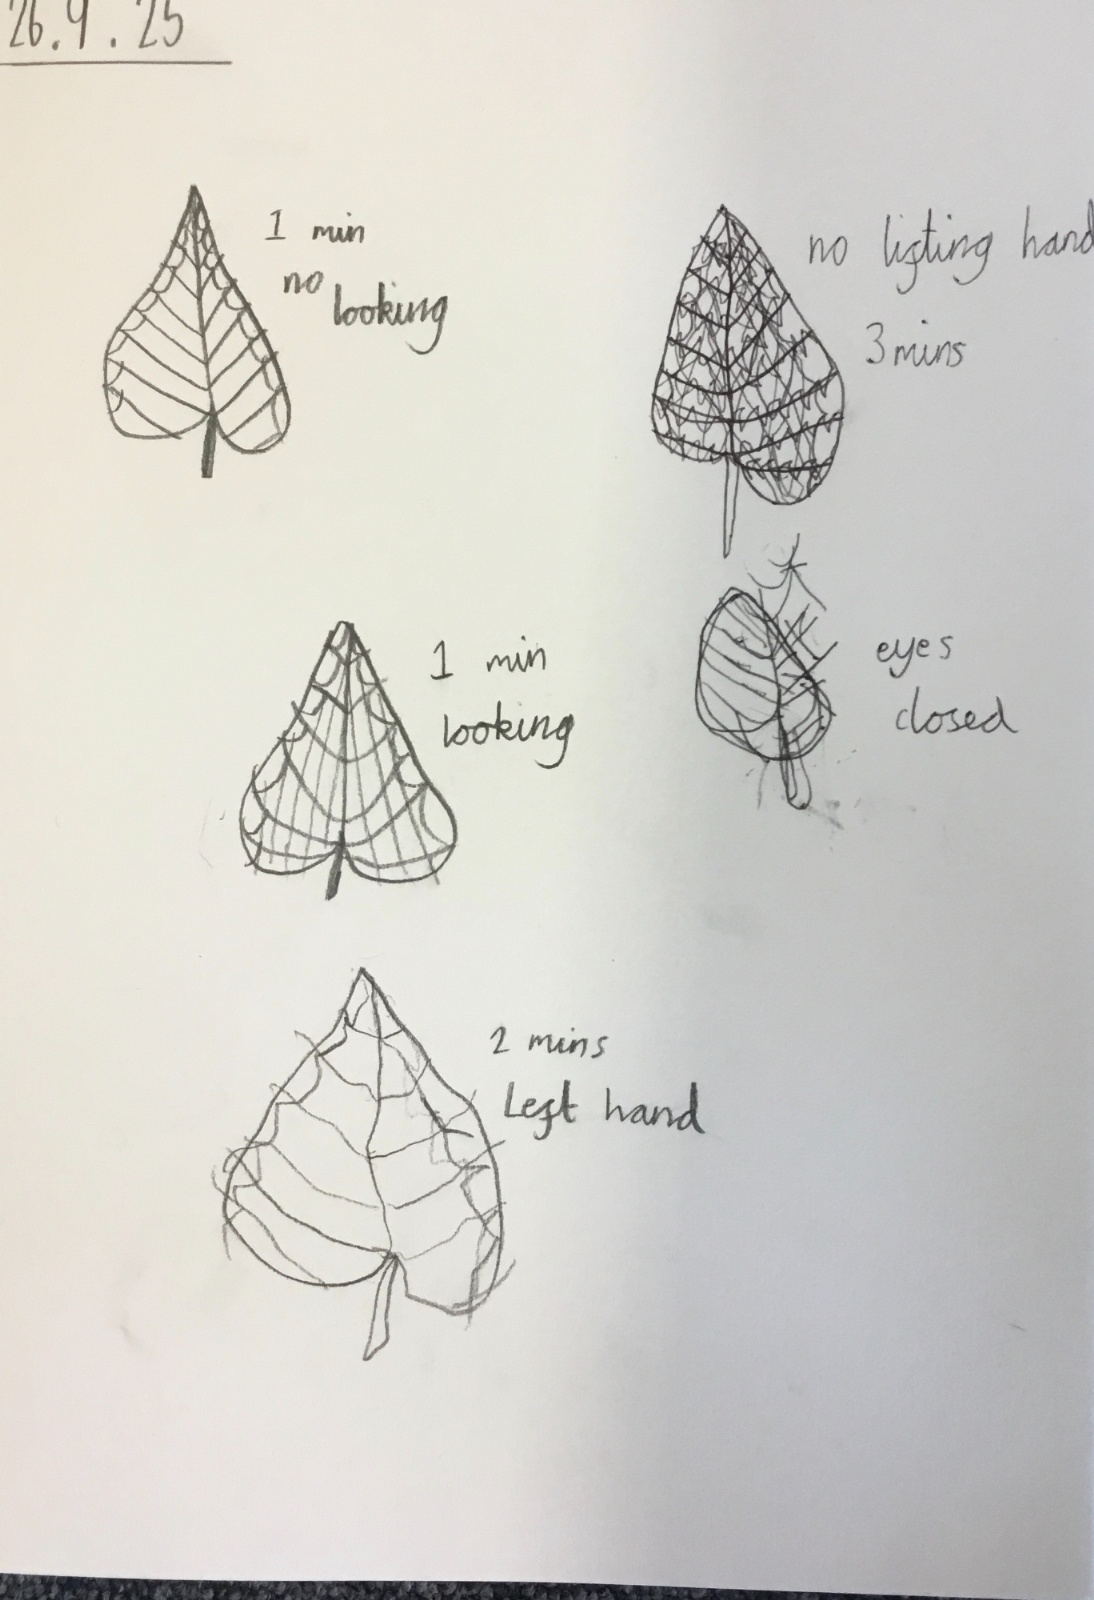 26.9.25
1 min
no
looking
no lifting hand
3 mins
1 min
looking
eyes
closed
2 mins
Left hand